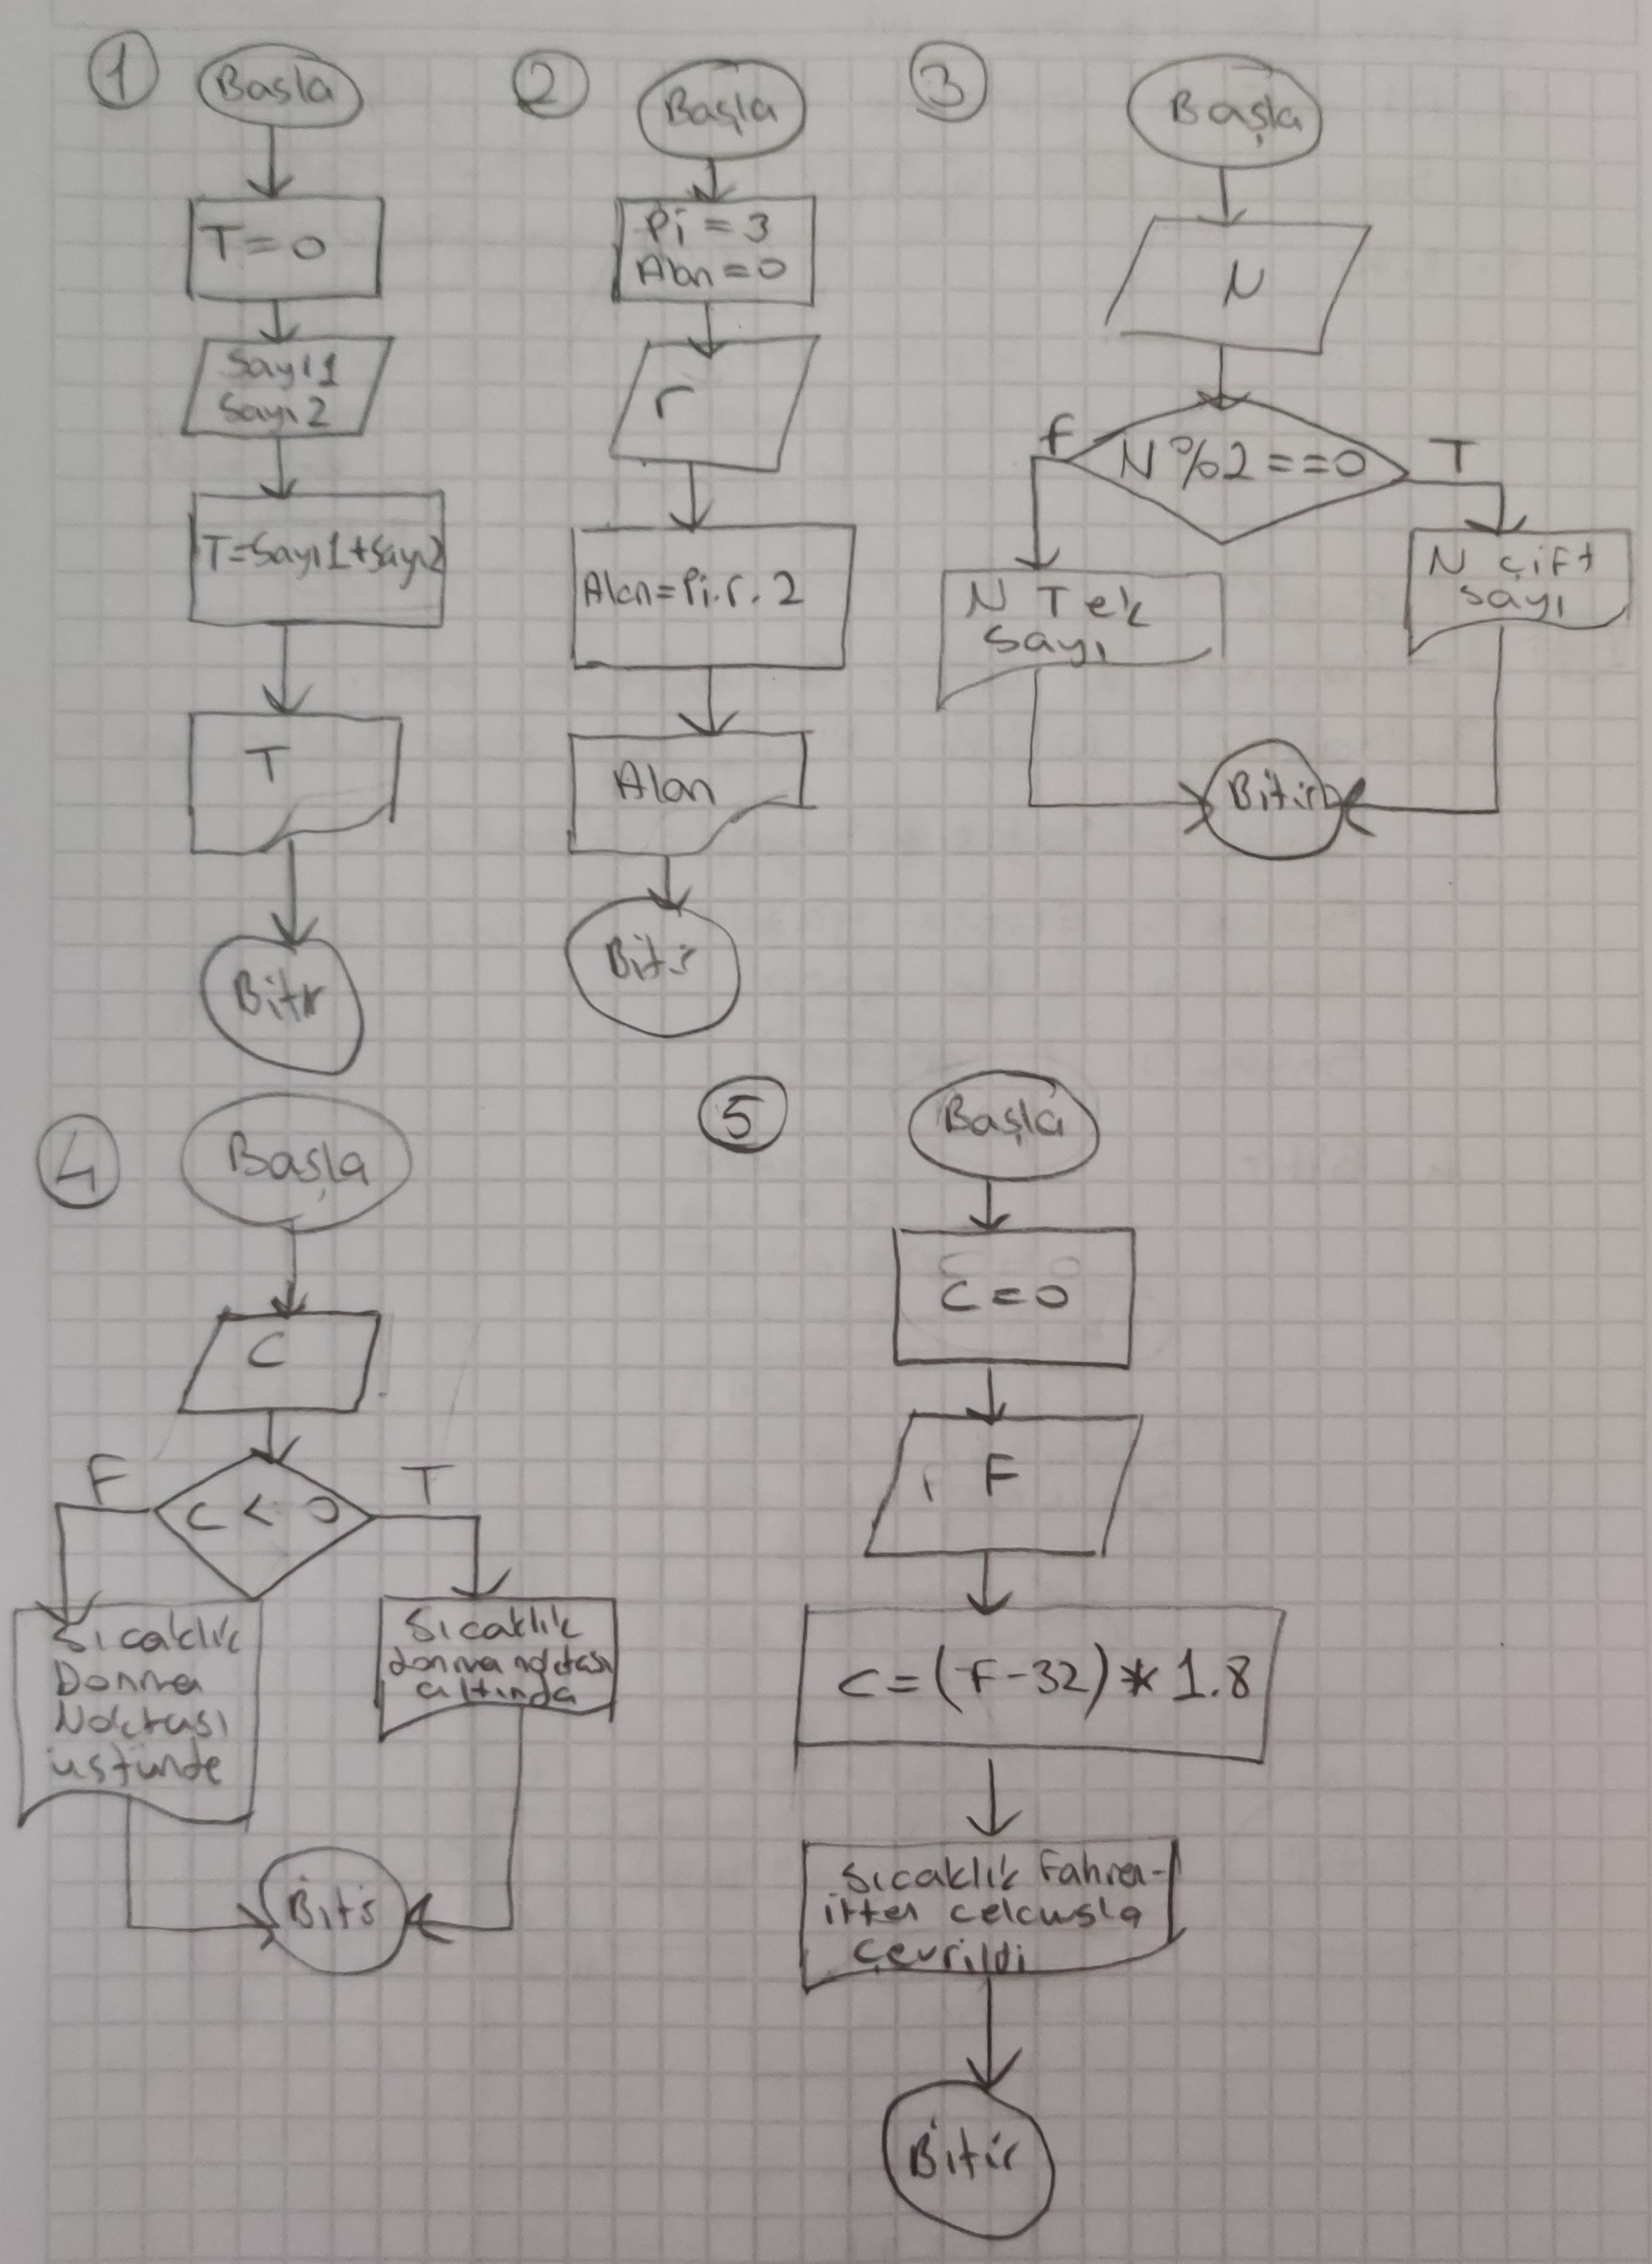 1
Başla
T=0
Sayı1
Sayı2
T=Sayı1+Sayı2
T
Bitir
2
Başla
Pi=3
Alan=0
r
Alan=Pi.r.2
Alan
Bitir
3
Başla
N
N%2==0
f
T
N Tek
sayı
N çift
sayı
Bitir
4
Başla
C
C<0
F
T
Sıcaklık
Donma
Noktası
üstünde
Sıcaklık
donma noktası
altında
Bitir
5
Başla
C=0
F
C=(F-32)*1.8
Sıcaklık Fahren-
itten celcusla
çevrildi
Bitir